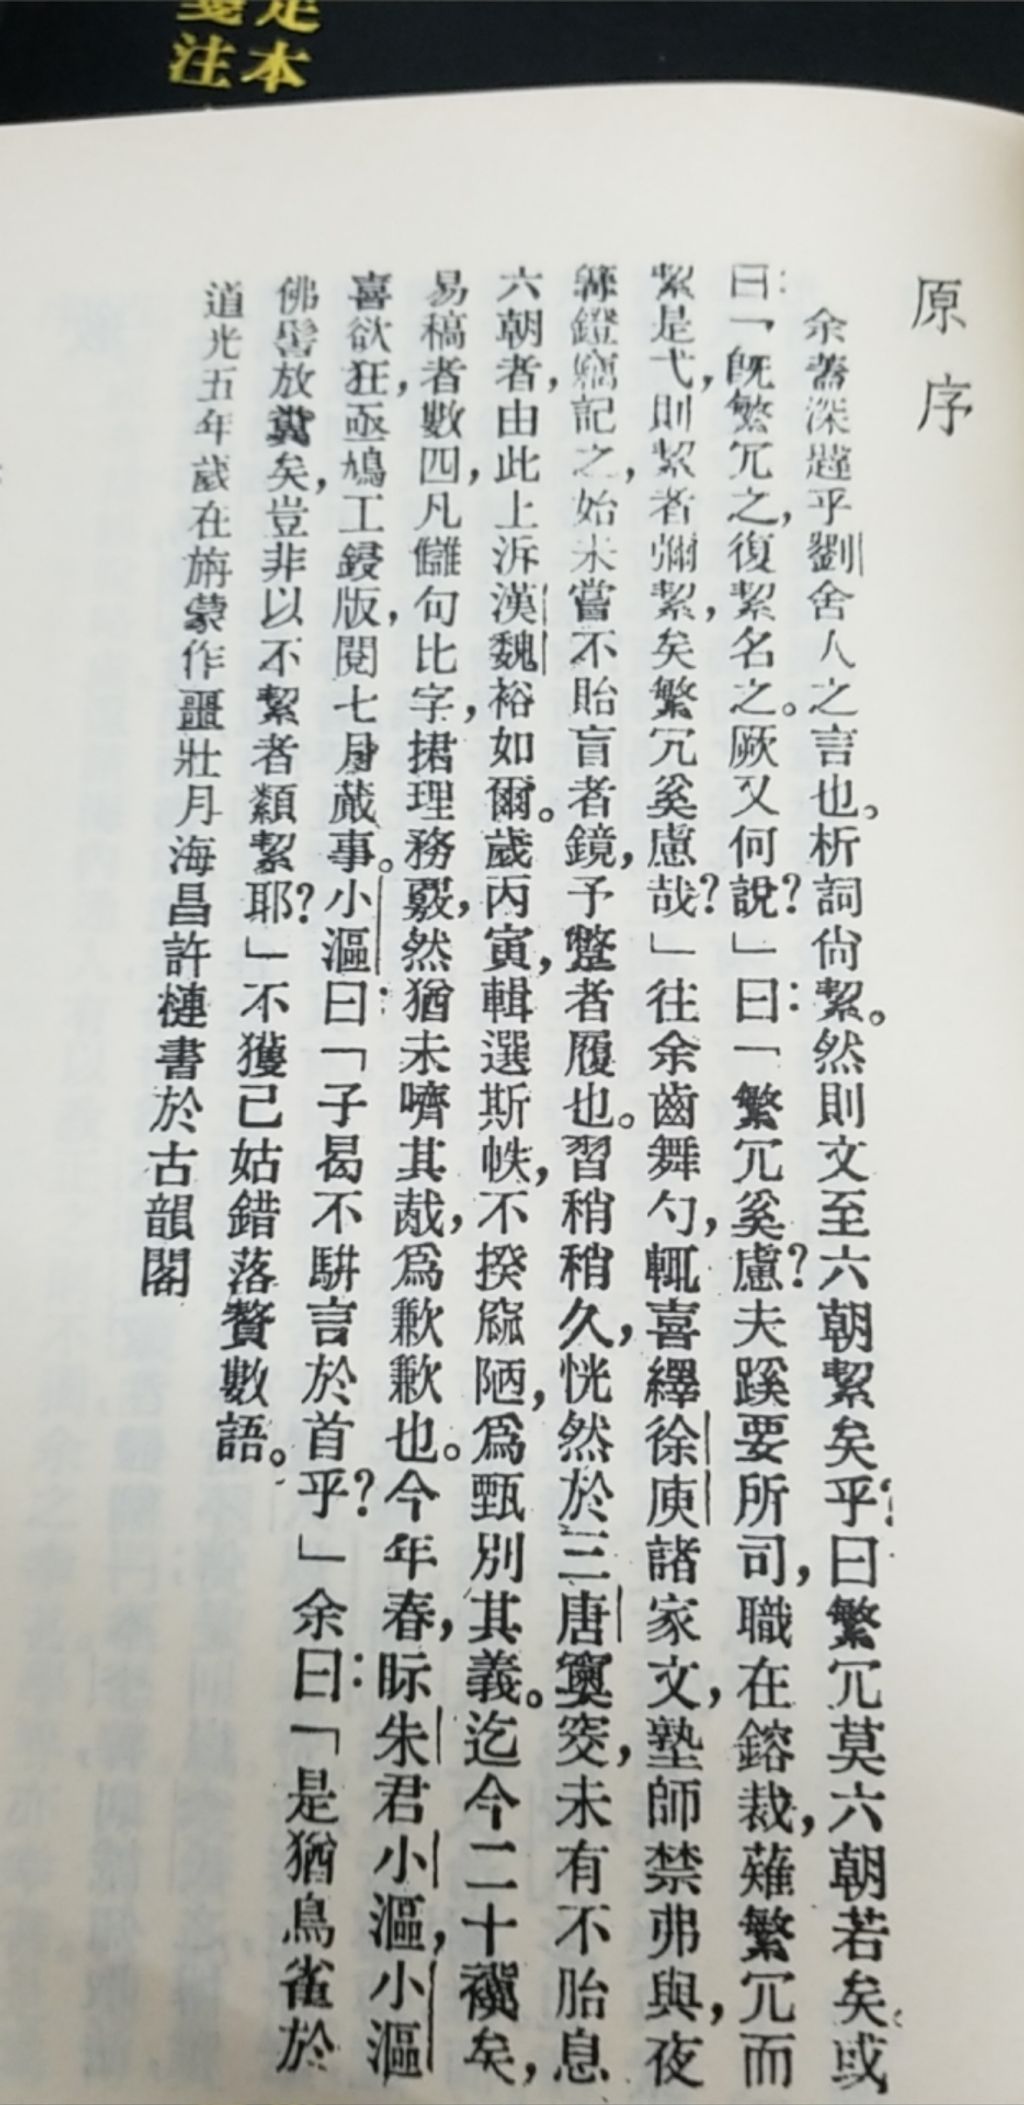 箋定
注本
原序
余蓄深韙乎劉舍人之言也。析詞尙絜。然則文至六朝絜矣乎?曰繁冗莫六朝若矣。或
曰:「旣繁冗之,復絜名之。厥又何說?」曰:「繁冗奚慮?夫蹊要所司,職在鎔裁,薙繁冗而
絜是弋,則絜者彌絜,矣繁冗奚慮哉?」往余齒舞勺,輒喜繹徐庾諸家文,塾師禁弗與,夜
篝鐙竊記之,始未嘗不貽盲者鏡,予躄者履也。習稍稍久,恍然於三唐奧窔,未有不胎息
六朝者,由此上泝漢魏裕如爾。歲丙寅,輯選斯帙,不揆窳陋,爲甄別其義。迄今二十襈矣,
易稿者數四,凡讎句比字,捃理務覈,然猶未嚌其胾,爲歉歉也。今年春,眎朱君小漚,小漚
喜欲狂,亟鳩工鋟版,閱七月蕆事。小漚曰:「子曷不騈言於首乎?」余曰:「是猶鳥雀於
佛髻放糞矣,豈非以不絜者纇絜耶?」不獲已姑錯落贅數語。
道光五年歲在旃蒙作噩壯月海昌許槤書於古韻閣